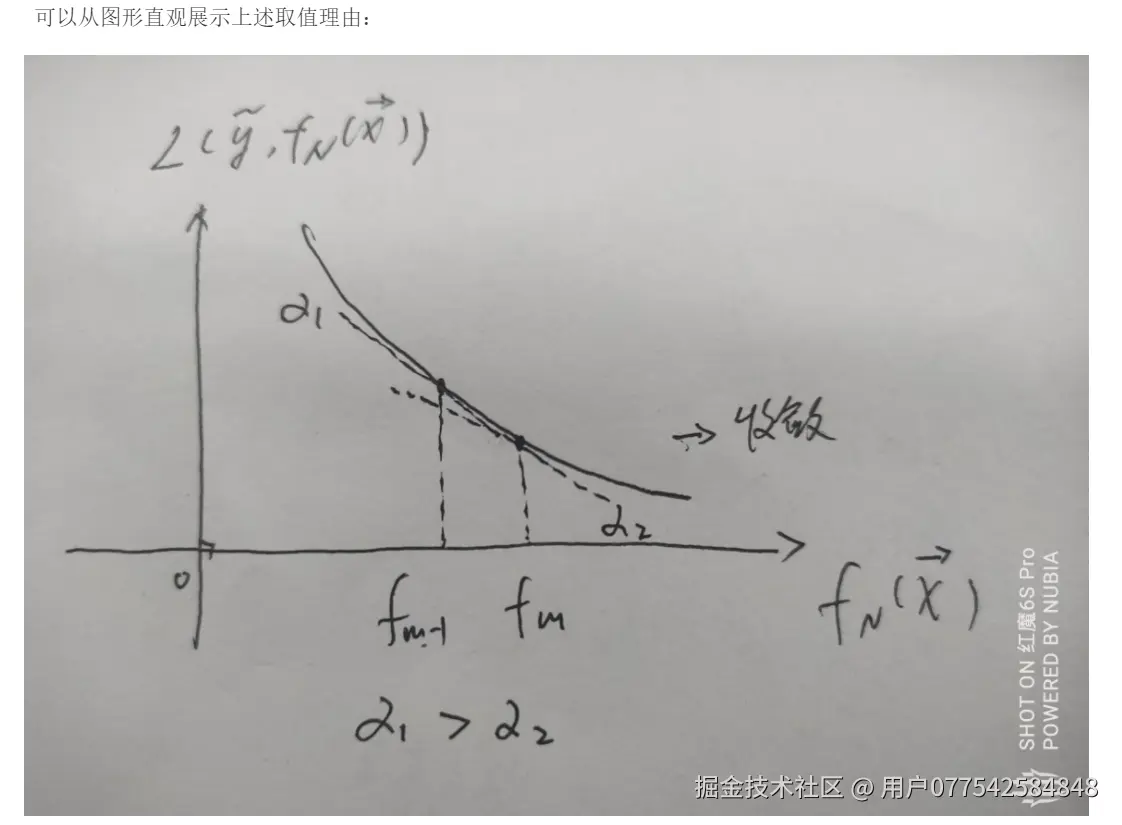 可以从图形直观展示上述取值理由：
L(ỹ, f_N(x⃗))
α₁
→ 收敛
α₂
0
f_{m-1}
f_m
f_N(x⃗)
α₁ > α₂
SHOT ON 红魔6S Pro
POWERED BY NUBIA
掘金技术社区 @ 用户077542584848